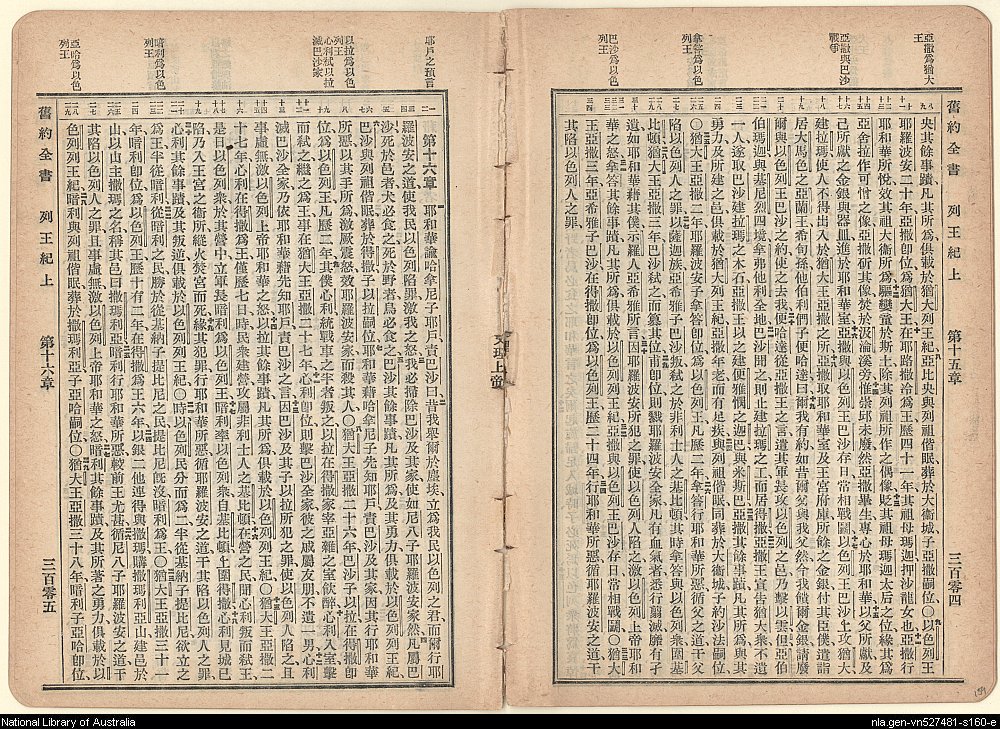 亞撒爲猶大
王
亞撒與巴沙
戰爭
拿答爲以色
列王
巴沙爲以色
列王
舊約全書 列王紀上 第十五章 三百零四
央其餘事蹟凡其所爲俱載於猶大列王紀亞比央與列祖偕眠葬於大衛城子亞撒嗣位〇以色列王
耶羅波安二十年亞撒卽位爲猶大王在耶路撒冷爲王歷四十一年其祖母瑪迦押沙龍女也亞撒行
耶和華所悅效其祖大衛所爲驅孌童於斯土除其列祖所作之偶像貶其祖母瑪迦太后之位緣其爲
亞舍拉作可憎之像亞撒斫其像焚於汲淪溪旁惟崇邱未廢然亞撒畢生專心於耶和華以父所獻及
己所獻之金銀與器皿進於耶和華室亞撒與以色列王巴沙存日常相戰鬭以色列王巴沙上攻猶大
建拉瑪使人不得出入於猶大王亞撒之所亞撒取耶和華室及王宮府庫所餘之金銀付其臣僕遣詣
居大馬色之亞蘭王希旬孫他伯利們子便哈達曰爾我有約如昔爾父與我父然今我餽爾金銀請廢
爾與以色列王巴沙之約使之去我便哈達從亞撒王之言遣其軍長攻以色列之邑乃擊以雲但亞伯
伯瑪迦與基尼烈四境拿弗他利全地巴沙聞之則止建拉瑪之工而居得撒亞撒王宣告猶大衆不遺
一人遂取巴沙建拉瑪之木石亞撒王以之建便雅憫之迦巴與米斯巴亞撒其餘事蹟凡其所爲與其
勇力及所建之邑俱載於猶大列王紀亞撒年老而有足疾與列祖偕眠同葬於大衛城子約沙法嗣位
〇猶大王亞撒二年耶羅波安子拿答卽位爲以色列王凡歷二年拿答行耶和華所惡循父之道干父
陷以色列人之罪以薩迦族亞希雅子巴沙叛弒之於非利士人之基比頓其時拿答與以色列衆圍基
比頓猶大王亞撒三年巴沙弒之而簒其位甫卽位則戮耶羅波安全家凡有血氣者悉行翦滅靡有孑
遺如耶和華藉其僕示羅人亞希雅所言因耶羅波安所犯之罪使以色列人陷之激以色列上帝耶和
華之怒拿答其餘事蹟凡其所爲俱載於以色列列王紀亞撒與以色列王巴沙存日常相戰鬭〇猶大
王亞撒三年亞希雅子巴沙在得撒卽位爲以色列王歷二十四年行耶和華所惡循耶羅波安之道干
其陷以色列人之罪
耶戶之預言
以拉爲以色
列王
心利弒以拉
滅巴沙家
暗利爲以色
列王
亞哈爲以色
列王
第十六章 耶和華諭哈拿尼子耶戶責巴沙曰昔我舉爾於塵埃立爲我民以色列之君而爾行耶
羅波安之道使我民以色列陷罪激我之怒我必掃除巴沙及其家使如尼八子耶羅波安家然凡屬巴
沙死於邑者犬必食之死於野者鳥必食之巴沙其餘事蹟凡其所爲及其勇力俱載於以色列列王紀
巴沙與列祖偕眠葬於得撒子以拉嗣位耶和華藉哈拿尼子先知耶戶責巴沙及其家因其行耶和華
所惡以其手所爲激厥震怒效耶羅波安家而殺其人〇猶大王亞撒二十六年巴沙子以拉在得撒卽
位爲以色列王凡歷二年其僕心利統戰車之半者叛之以拉在得撒家宰亞雜之室飲醉心利入室擊
而弒之繼之爲王事在猶大王亞撒二十七年心利卽位則擊巴沙全家彼之戚屬友朋不遺一男心利
滅巴沙全家乃依耶和華藉先知耶戶責巴沙之言因巴沙及其子以拉所犯之罪使以色列人陷之且
事虛無激以色列上帝耶和華之怒以拉其餘事蹟凡其所爲俱載於以色列列王紀〇猶大王亞撒二
十七年心利在得撒爲王僅歷七日時民衆建營攻屬非利士人之基比頓在營之民聞心利叛而弒王
是日以色列衆於其營中立軍長暗利爲以色列王暗利率以色列衆自基比頓上圍得撒心利見城已
陷乃入王宮之衞所縱火焚宮而死緣其犯罪行耶和華所惡循耶羅波安之道干其陷以色列人之罪
心利其餘事蹟及其叛逆俱載於以色列列王紀〇時以色列民分而爲二半從基納子提比尼欲立之
爲王半從暗利從暗利之民勝於從基納子提比尼之民提比尼旣沒暗利爲王〇猶大王亞撒三十一
年暗利卽位爲以色列王歷十有二年在得撒爲王六年以銀二他連得與撒瑪購撒瑪利亞山建邑於
山以山主撒瑪之名稱其邑曰撒瑪利亞暗利行耶和華所惡較前王尤甚循尼八子耶羅波安之道干
其陷以色列人之罪且事虛無激以色列上帝耶和華之怒暗利其餘事蹟及其所著之勇力俱載於以
色列列王紀暗利與列祖偕眠葬於撒瑪利亞子亞哈嗣位〇猶大王亞撒三十八年暗利子亞哈卽位
舊約全書 列王紀上 第十六章 三百零五
National Library of Australia
nla.gen-vn527481-s160-e